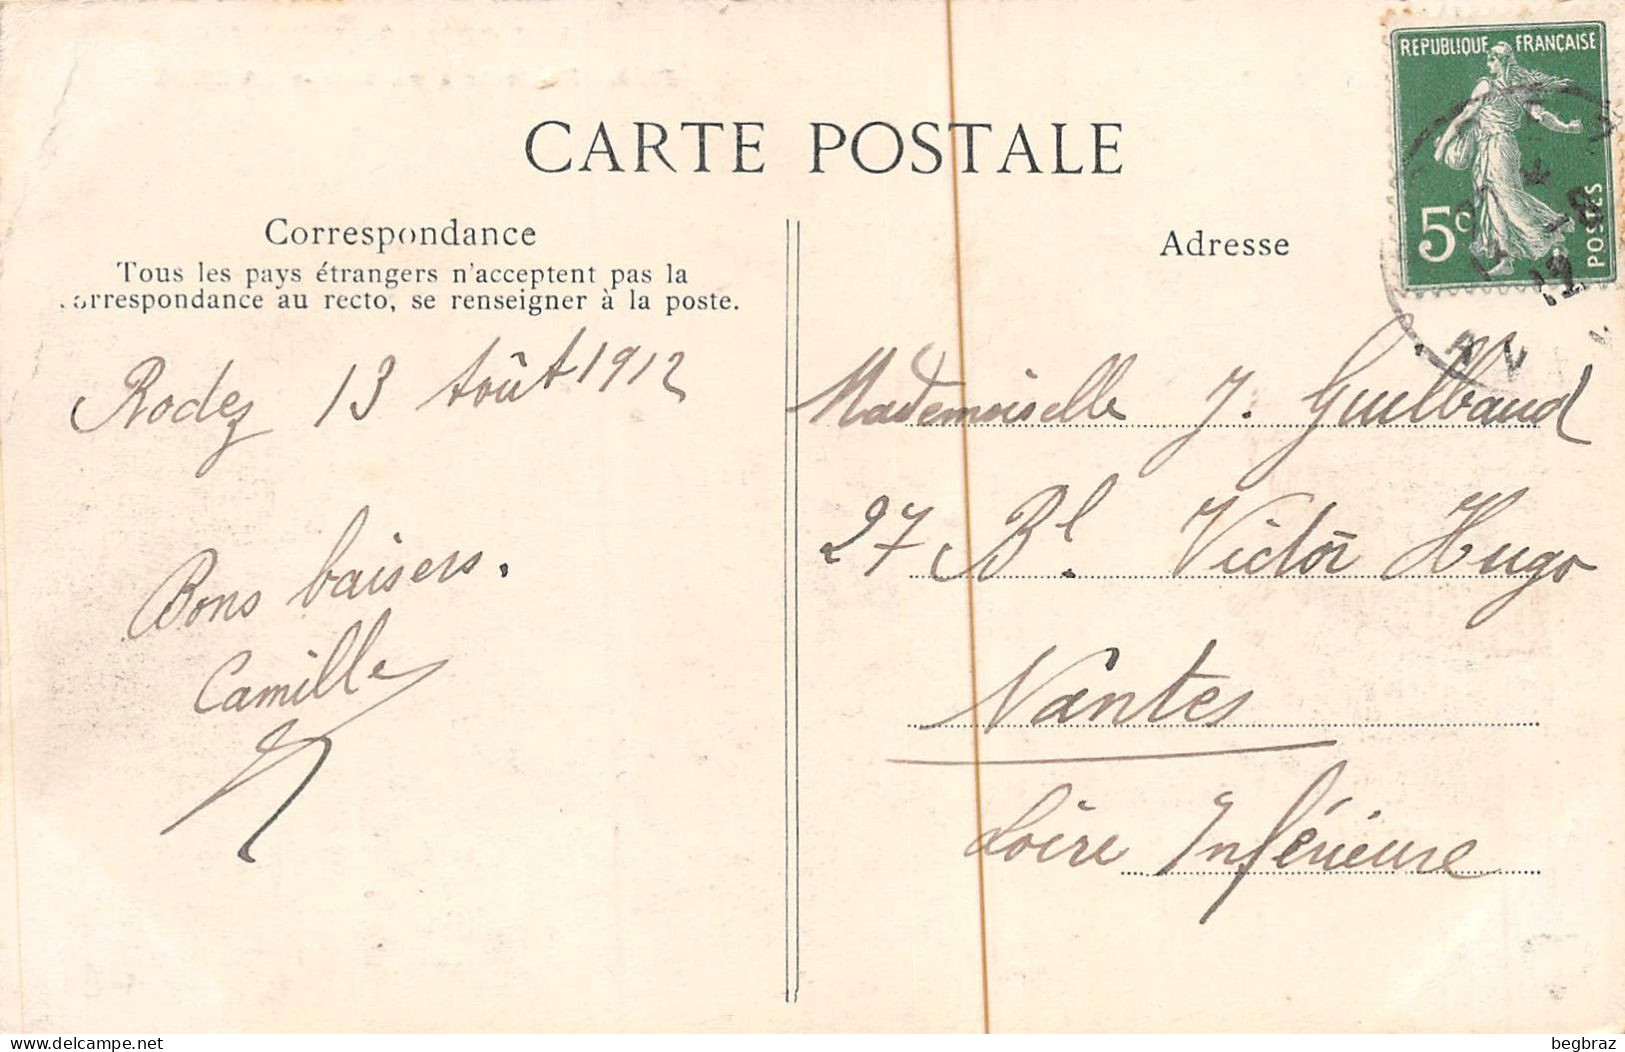 REPUBLIQUE FRANÇAISE
5c
POSTES
CARTE POSTALE
Correspondance
Tous les pays étrangers n'acceptent pas la
correspondance au recto, se renseigner à la poste.
Rodez 13 Août 1912
Bons baisers.
Camille
Adresse
Mademoiselle J. Guilbaud
27 Bl. Victor Hugo
Nantes
Loire Inférieure
delcampe.net
begbraz